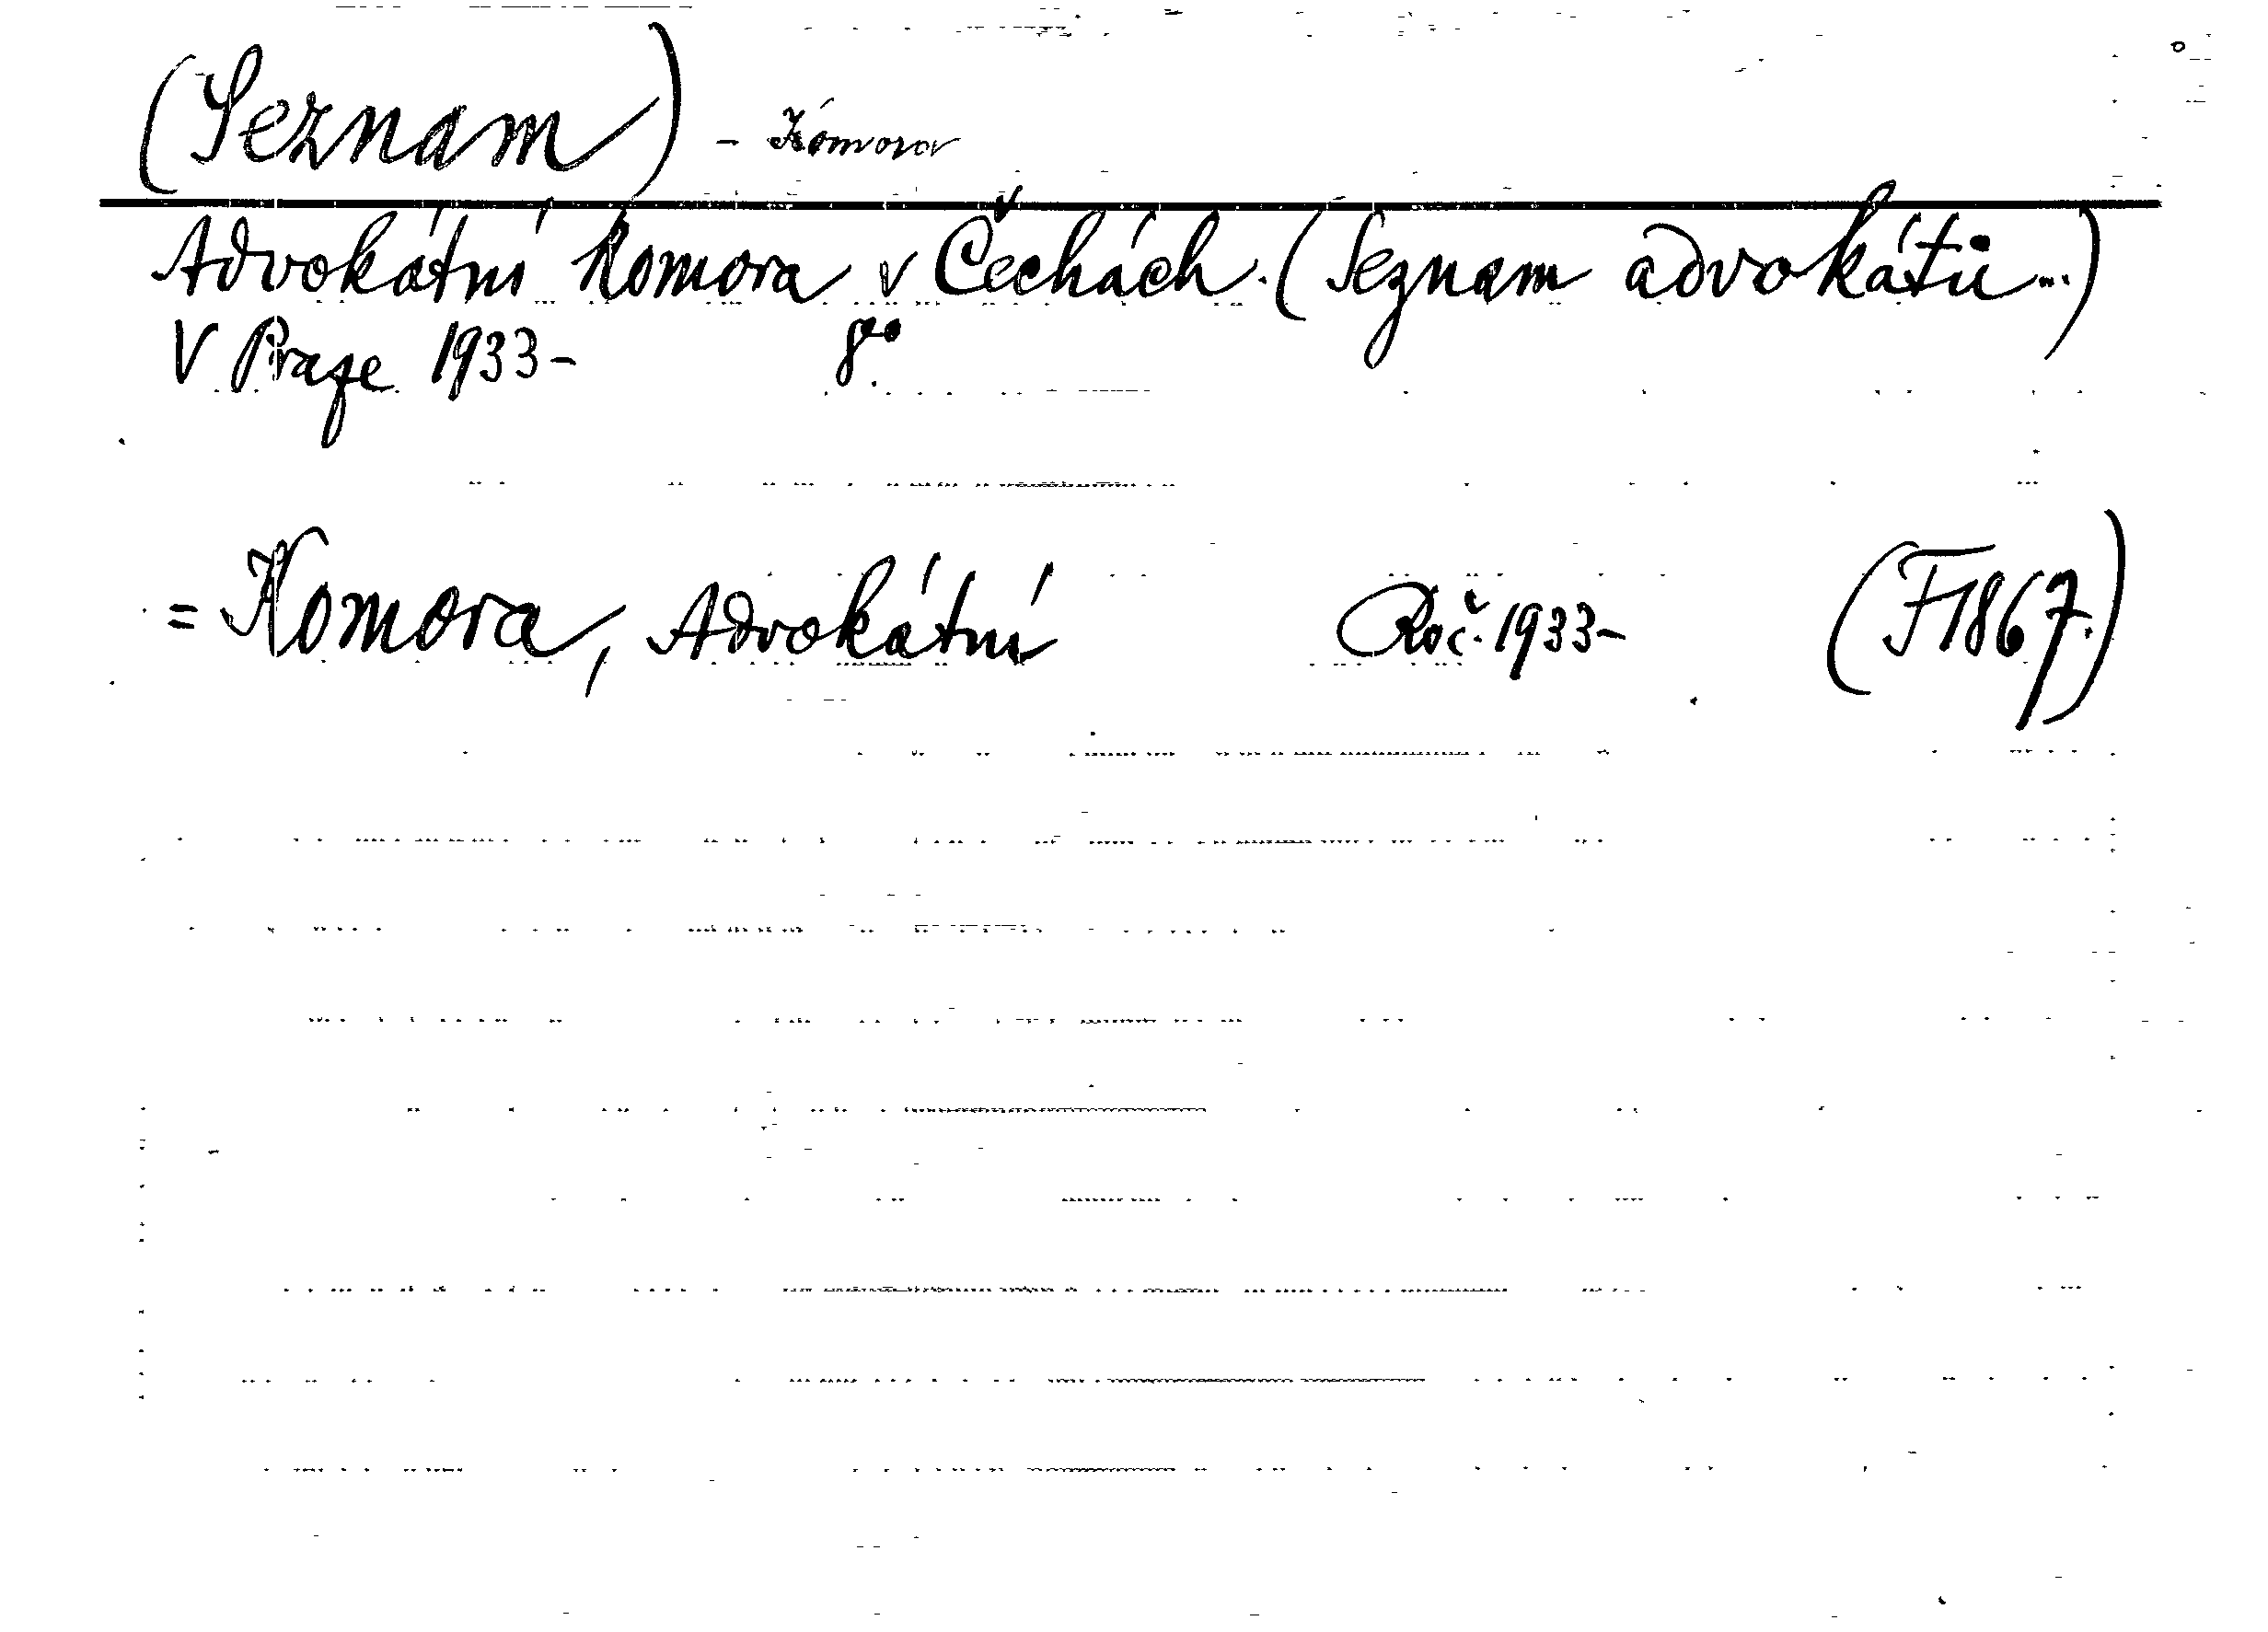 (Seznam) - Komora
Advokátní Komora v Čechách. (Seznam advokátů...)
V Praze 1933- 8°.
= Komora, Advokátní Roč. 1933- (F1867.)